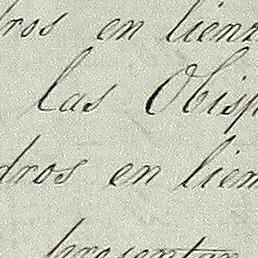 dros en lienz
las Obisp
dros en lien
presentan